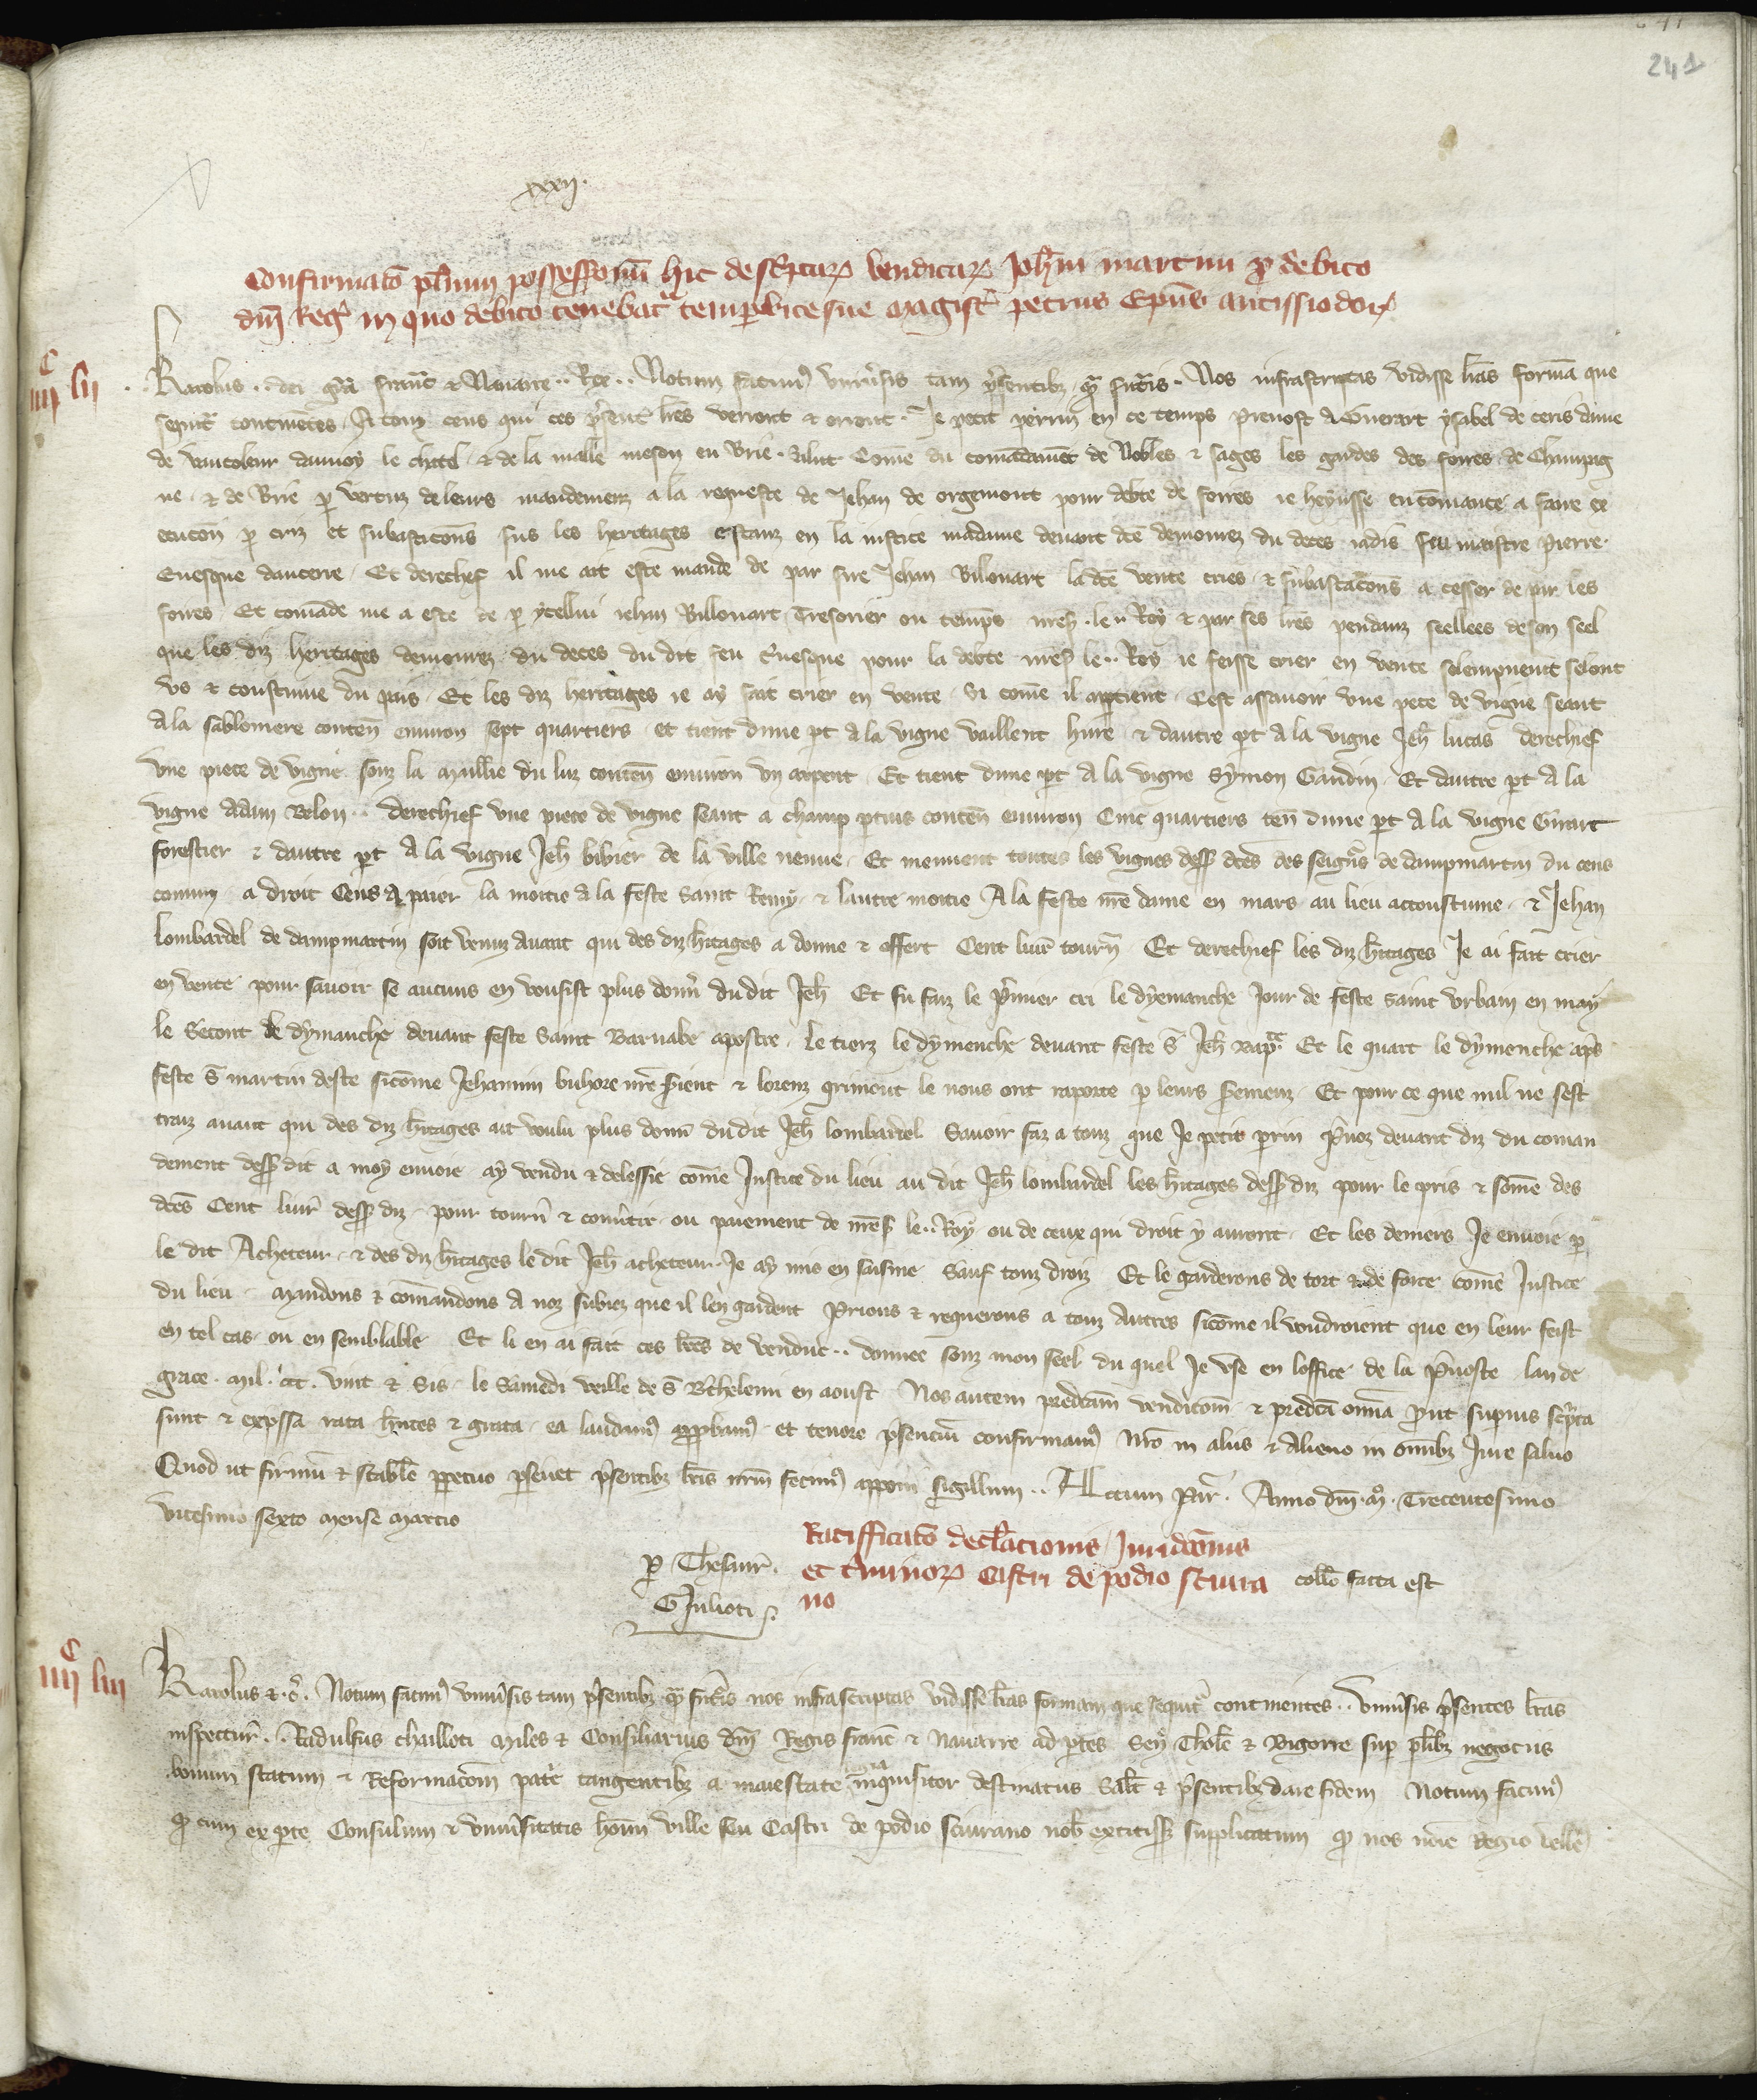 241
xxxij.
Confirmato plurium possessionum hic descriptarum venditarum Johanni martini pro debito
dni Reg in quo debito tenebatr tempore vite sue magistr petrus Epus autissiodorn
iiijc lij
Karolus .. dei gra franc et Navarre .. Rex .. Notum facimus universis tam presentibz qm futuris. Nos infrascriptas vidisse lras formam que
sequitr continentes. A touz ceus qui ces present lres verront et orront. Je petit perrin en ce temps prevost a Guerart ysabel de ceris dame
de vaucoleur daunoy le chatel et de la malle meson en Brie. Salut Come du comandament de Nobles et sages les gardes des foires de Champaig
ne et de Brie p vertuz de leurs mandemenz a la requeste de Jehan de orgemont pour debte de foires ie heusse encomancie a faire ex
ecucon p criz et subastacons sus les heritages estanz en la iustice madame devant dce demourez du deces iadis feu maistre Pierre.
Evesque daucerre. Et derechef il me ait este mande de par sire Jehan Bilouart la dce vente cries et subastacons a cesser de par les
foires Et comande me a este de p ycellui iehan Billouart Tresorier ou temps mess. le .. Roy et par ses lres pendanz seellees de son seel
que les diz heritages demourez du deces du dit feu Evesque pour la debte mess le .. Roy ie feisse crier en vente solempnemt selont
us et coustume du pais. Et les diz heritages ie ay fait crier en vente si come il apptient. Cest assavoir une pece de vigne seant
a la sablonniere conten environ sept quartiers et tient dune pt a la vigne vaillent hure et dautre pt a la vigne Jeh lucas derechief
une piece de vigne souz la mullie du luz conten environ un arpent. Et tient dune pt a la vigne Symon Gaudin. Et dautre pt a la
vigne adam Belon .. derechief une piece de vigne seant a champ ptuis conten environ Cinc quartiers ten dune pt a la vigne Girart
forestier et dautre pt a la vigne Jeh bibier de la ville neuve. Et meuvent toutes les vignes dess dces des seigneurs de dampmartin du cens
comun a droit Cens a paier la moitie a la feste saint Remy et lautre moitie A la feste nre dame en mars au lieu accoustume. et Jehan
Lombardel de dampmartin soit venuz avant qui des diz hitages a donne et offert Cent livr tourn Et derechief les diz hitages Je ai fait crier
en vente pour savoir se aucuns en vousist plus donner du dit Jeh Et fu faiz le premier cri le dyemanche Jour de feste saint urbain en may
le secont le dymanche devant feste saint Barnabe apostre. Le tierz le dymenche devant feste S Jeh bapt Et le quart le dymenche apres
feste S martin deste sicome Jehannin buhore nre sient et lorenz griment le nous ont raporte p leurs semenz. Et pour ce que nul ne sest
traiz avant qui des diz hitages ait voulu plus donn du dit Jeh lombardel Savoir faz a touz que Je petit prin prevoz devant diz du coman
dement dess dit a moy envoie ay vendu et delessie come Justice du lieu au dit Jeh lombardel les hitages dess diz pour le pris et some des
dces Cent livr dess diz. pour tourn et convtir ou paiement de mess le .. Roy ou de ceux qui droit y auront. Et les deniers Je envoie p
le dit Acheteur. et des diz hitages le dit Jeh acheteur Je ay mis en saisine sauf touz droiz Et le garderons de tort et de force come Justice
du lieu. Mandons et comandons a noz subiez que il len gardent Prions et requerons a touz autres sicome il voudroient que en leur feist
en tel cas ou en semblable Et li en ai fait ces lres de vendue .. donnee souz mon seel du quel Je use en loffice de la prevoste lan de
grace. Mil. ccc. vint et sis. le Samedi veille de S Bthelemi en aoust Nos autem predcam vendicom et predca omnia put supius scpta
sunt et expssa rata hntes et grata. ea laudams appbams. et tenore psenciu confirmams Nro in aliis et alieno in omibz Jure salvo
Quod ut firmu et stabile ppetuo pseveret psentibz lris nrm fecims apponi sigillum .. Actum Par. Anno dni. mo. Trecentesimo
vicesimo sexto mense marcio
p Thesaur.
G Julioti.
Ratifficato declaracionis Jurisdiconis
et tminor Castri de podio sciura
no
collo facta est
iiijc liij
Karolus etc. Notum facims univsis tam psentibz qm futuris nos infrascriptas vidisse lras formam que sequitr continentes .. Univsis psentes lras
inspectur .. Radulfus chailloti Miles et Consiliarius dni Regis franc et Navarre ad ptes Sen Thole et Bigorre sup plibz negociis
bonum statum et Reformacom patrie tangentibz a maiestate inquisitor destinatus Salt et psentibz dare fidem Notum facims
q cum ex pte Consulum et univsitatis hom ville seu Castri de podio sciurano nob extitiss supplicatum q nos noie Regio velle